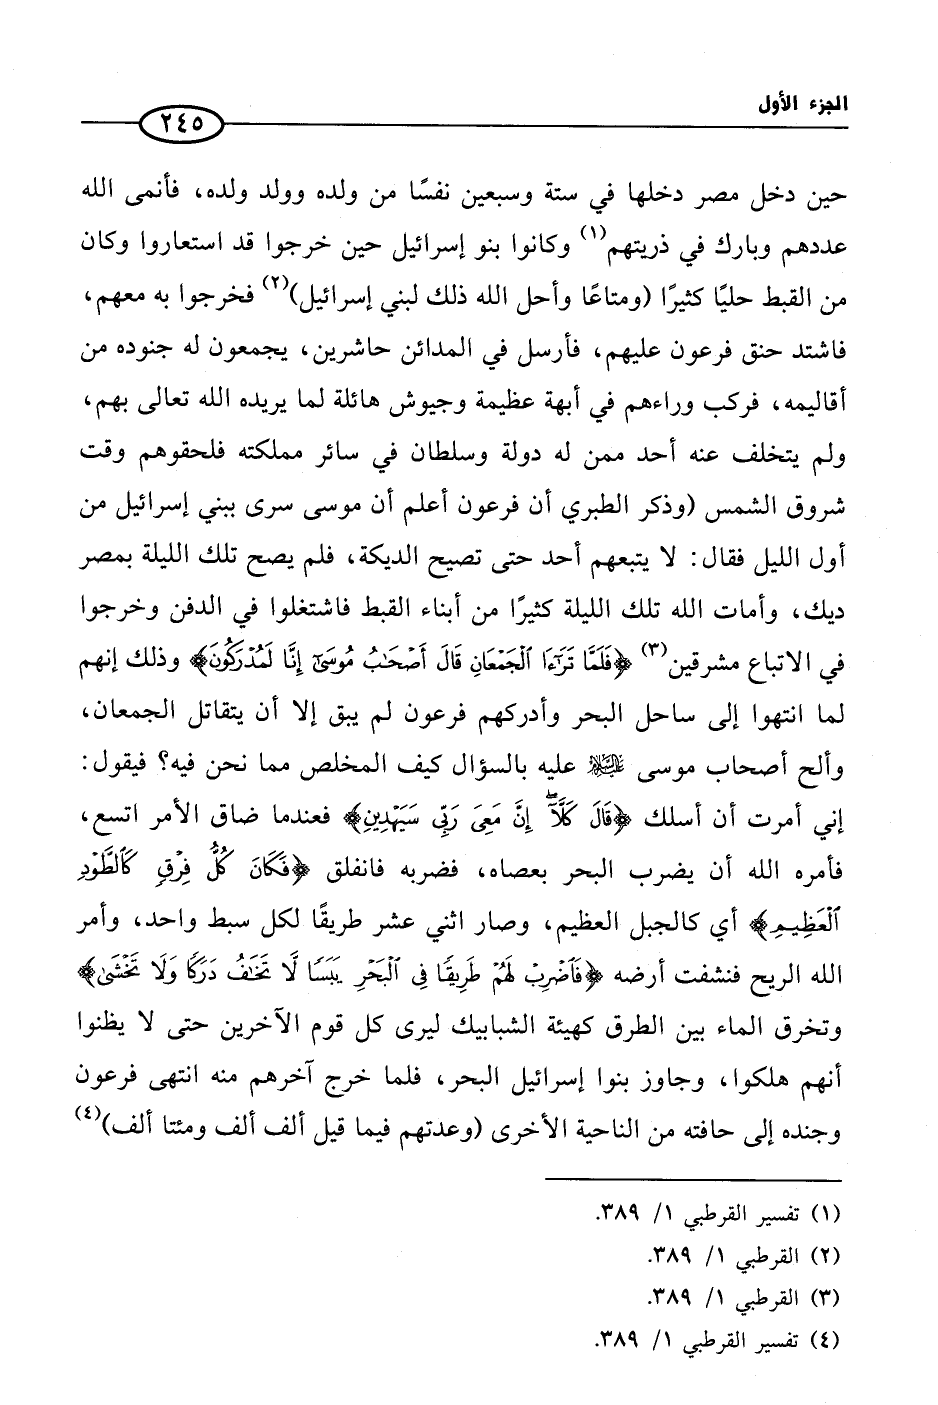 الجزء الأول
٢٤٥
حين دخل مصر دخلها في ستة وسبعين نفسًا من ولده وولد ولده، فأنمى الله
عددهم وبارك في ذريتهم(١) وكانوا بنو إسرائيل حين خرجوا قد استعاروا وكان
من القبط حليًا كثيرًا (ومتاعًا وأحل الله ذلك لبني إسرائيل)(٢) فخرجوا به معهم،
فاشتد حنق فرعون عليهم، فأرسل في المدائن حاشرين، يجمعون له جنوده من
أقاليمه، فركب وراءهم في أبهة عظيمة وجيوش هائلة لما يريده الله تعالى بهم،
ولم يتخلف عنه أحد ممن له دولة وسلطان في سائر مملكته فلحقوهم وقت
شروق الشمس (وذكر الطبري أن فرعون أعلم أن موسى سرى ببني إسرائيل من
أول الليل فقال: لا يتبعهم أحد حتى تصيح الديكة، فلم يصح تلك الليلة بمصر
ديك، وأمات الله تلك الليلة كثيرًا من أبناء القبط فاشتغلوا في الدفن وخرجوا
في الاتباع مشرقين(٣) ﴿فَلَمَّا تَرَٰٓءَا ٱلْجَمْعَانِ قَالَ أَصْحَٰبُ مُوسَىٰٓ إِنَّا لَمُدْرَكُونَ﴾ وذلك إنهم
لما انتهوا إلى ساحل البحر وأدركهم فرعون لم يبق إلا أن يتقاتل الجمعان،
وألح أصحاب موسى عليه السلام عليه بالسؤال كيف المخلص مما نحن فيه؟ فيقول:
إني أمرت أن أسلك ﴿قَالَ كَلَّآ إِنَّ مَعِىَ رَبِّى سَيَهْدِينِ﴾ فعندما ضاق الأمر اتسع،
فأمره الله أن يضرب البحر بعصاه، فضربه فانفلق ﴿فَكَانَ كُلُّ فِرْقٍ كَٱلطَّوْدِ
ٱلْعَظِيمِ﴾ أي كالجبل العظيم، وصار اثني عشر طريقًا لكل سبط واحد، وأمر
الله الريح فنشفت أرضه ﴿فَٱضْرِبْ لَهُمْ طَرِيقًا فِى ٱلْبَحْرِ يَبَسًا لَّا تَخَٰفُ دَرَكًا وَلَا تَخْشَىٰ﴾
وتخرق الماء بين الطرق كهيئة الشبابيك ليرى كل قوم الآخرين حتى لا يظنوا
أنهم هلكوا، وجاوز بنوا إسرائيل البحر، فلما خرج آخرهم منه انتهى فرعون
وجنده إلى حافته من الناحية الأخرى (وعدتهم فيما قيل ألف ألف ومئتا ألف)(٤)
(١) تفسير القرطبي ١/ ٣٨٩.
(٢) القرطبي ١/ ٣٨٩.
(٣) القرطبي ١/ ٣٨٩.
(٤) تفسير القرطبي ١/ ٣٨٩.